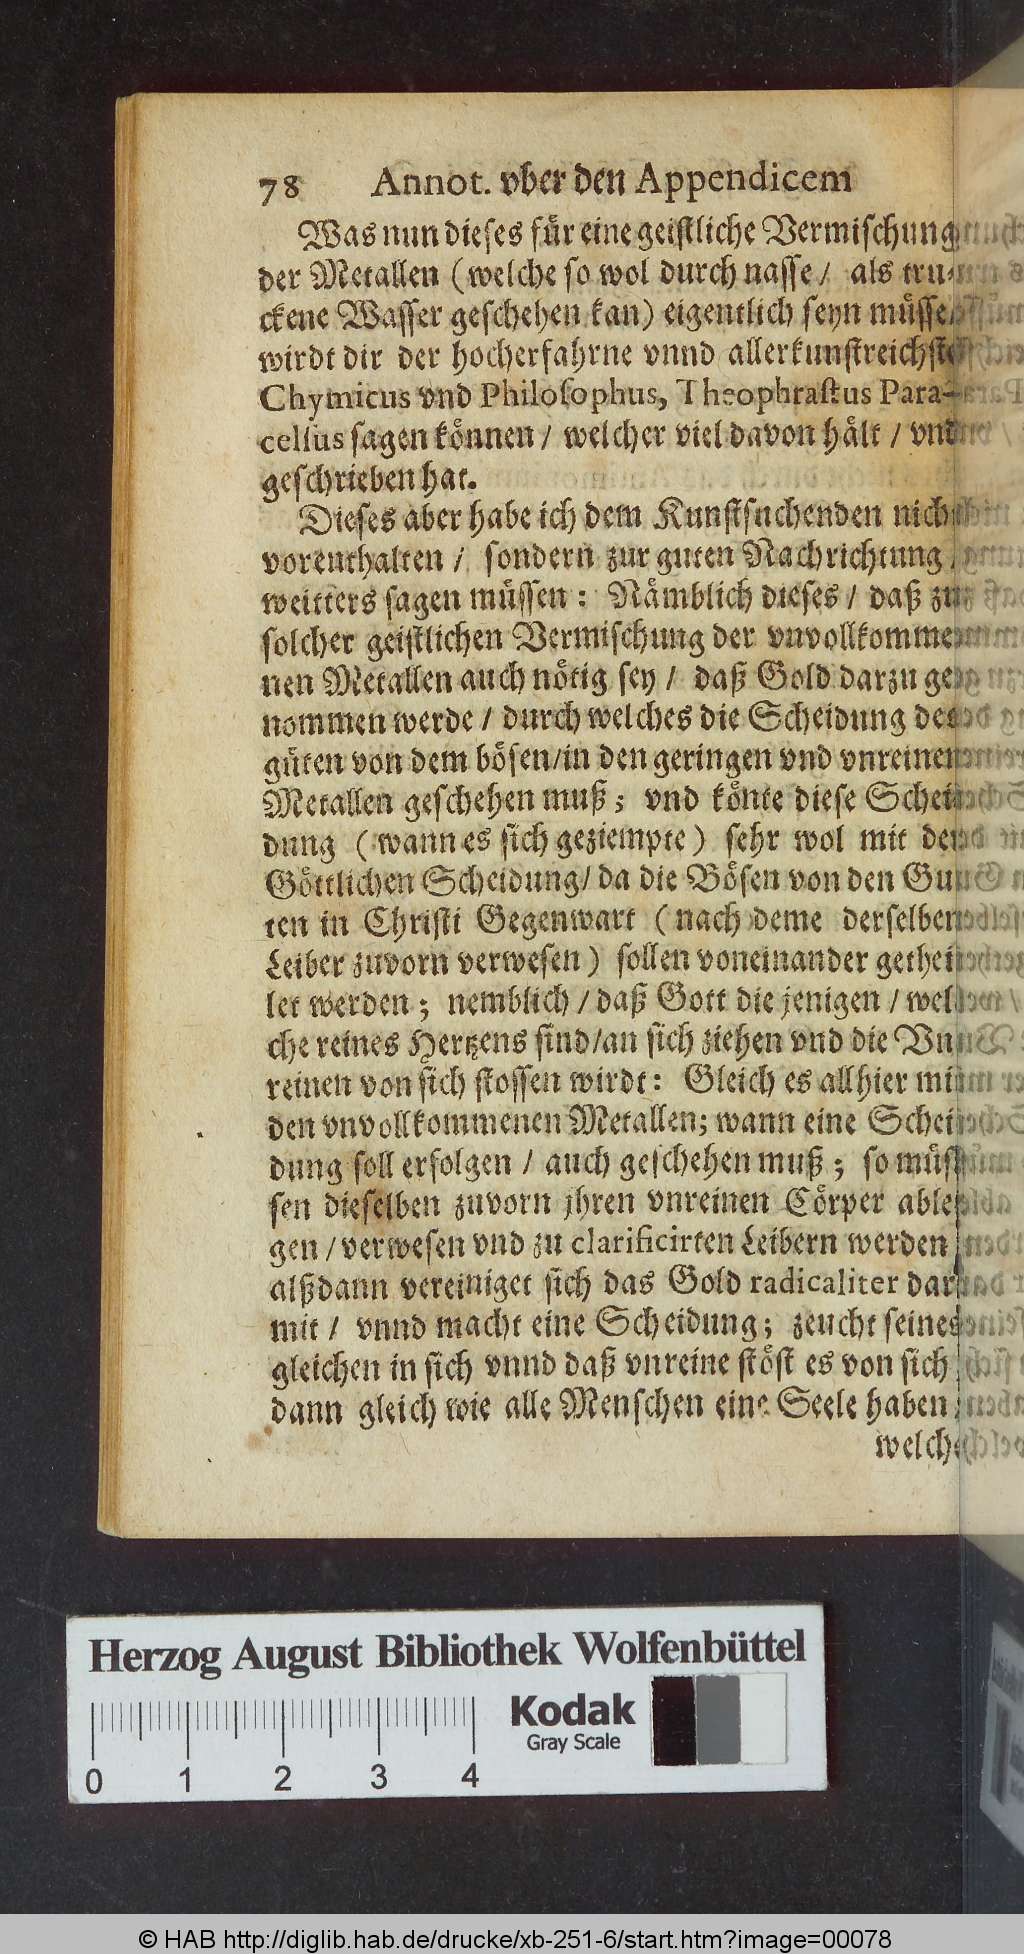 78 Annot. vber den Appendicem
Was nun dieses für eine geistliche Vermischung
der Metallen (welche so wol durch nasse / als tru-
ckene Wasser geschehen kan) eigentlich seyn müsse
wirdt dir der hocherfahrne vnnd allerkunstreichste
Chymicus vnd Philosophus, Theophrastus Para-
cellus sagen können / welcher viel davon hält / vnd
geschrieben hat.
Dieses aber habe ich dem Kunstsuchenden nicht
vorenthalten / sondern zur guten Nachrichtung
weitters sagen müssen: Nämblich dieses / daß zu
solcher geistlichen Vermischung der vnvollkomme-
nen Metallen auch nötig sey / daß Gold darzu ge-
nommen werde / durch welches die Scheidung des
güten von dem bösen/in den geringen vnd vnreinen
Metallen geschehen muß; vnd könte diese Schei-
dung (wann es sich geziempte) sehr wol mit der
Göttlichen Scheidung/ da die Bösen von den Gu-
ten in Christi Gegenwart (nach deme derselben
Leiber zuvorn verwesen) sollen voneinander gethei-
let werden; nemblich / daß Gott die jenigen / wel-
che reines Hertzens sind/an sich ziehen vnd die Vn-
reinen von sich stossen wirdt: Gleich es allhier mit
den vnvollkommenen Metallen; wann eine Schei-
dung soll erfolgen / auch geschehen muß; so müs-
sen dieselben zuvorn jhren vnreinen Cörper able-
gen / verwesen vnd zu clarificirten Leibern werden
alßdann vereiniget sich das Gold radicaliter dar-
mit / vnnd macht eine Scheidung; zeucht seines
gleichen in sich vnnd daß vnreine stöst es von sich
dann gleich wie alle Menschen eine Seele haben
welche
Herzog August Bibliothek Wolfenbüttel
Kodak
Gray Scale
0 1 2 3 4
© HAB http://diglib.hab.de/drucke/xb-251-6/start.htm?image=00078